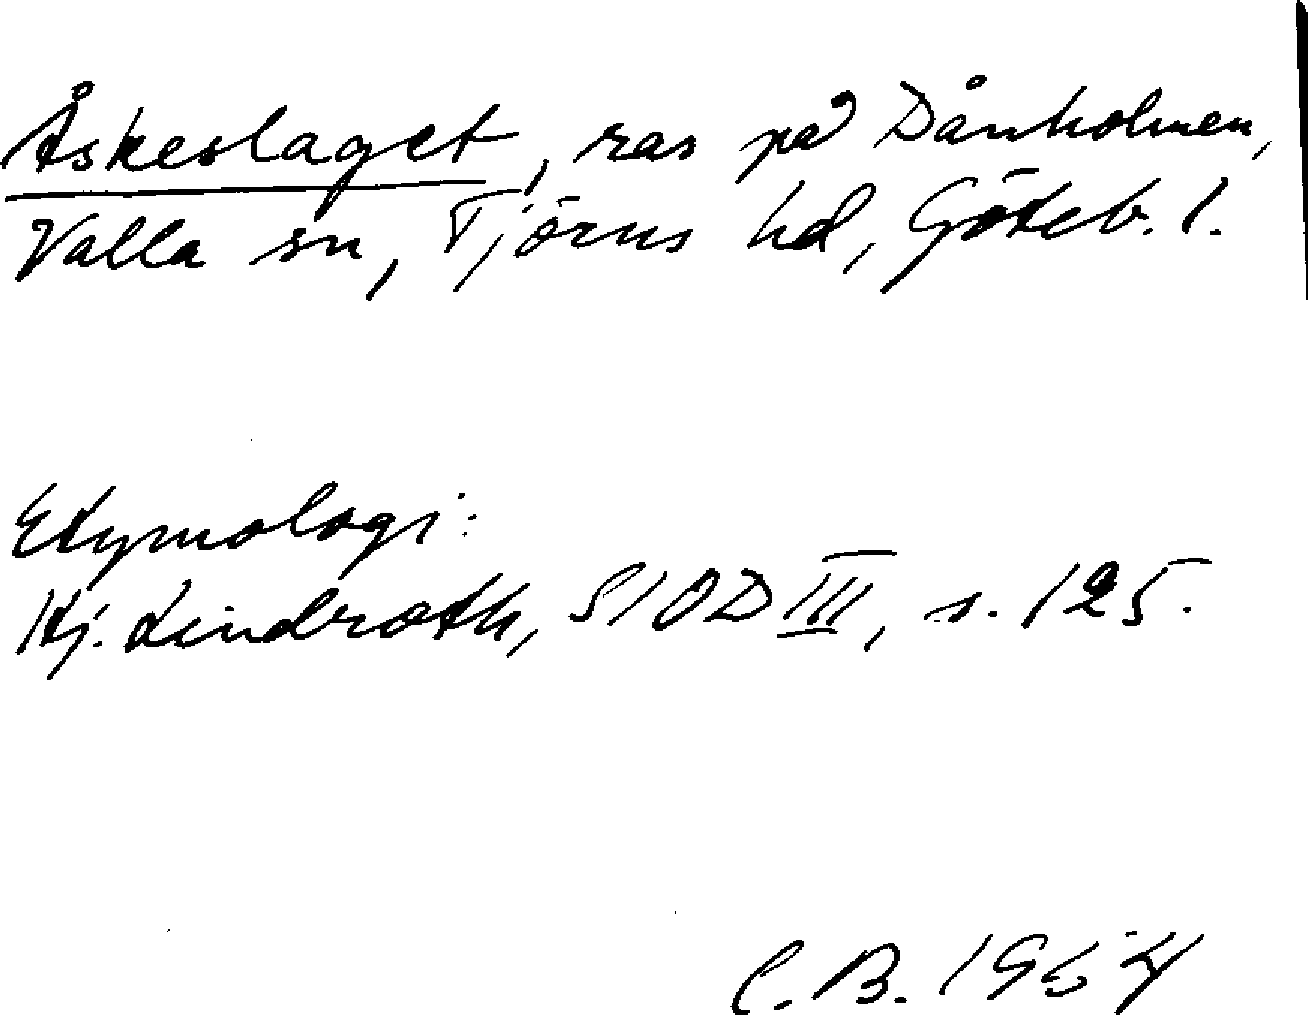 Åskeslaget, ras på Dånholmen,
Valla sn, Tjörns hd, Göteb. l.
Etymologi:
Hj. Lindroth, SIOD III, s. 125.
C. B. 1964